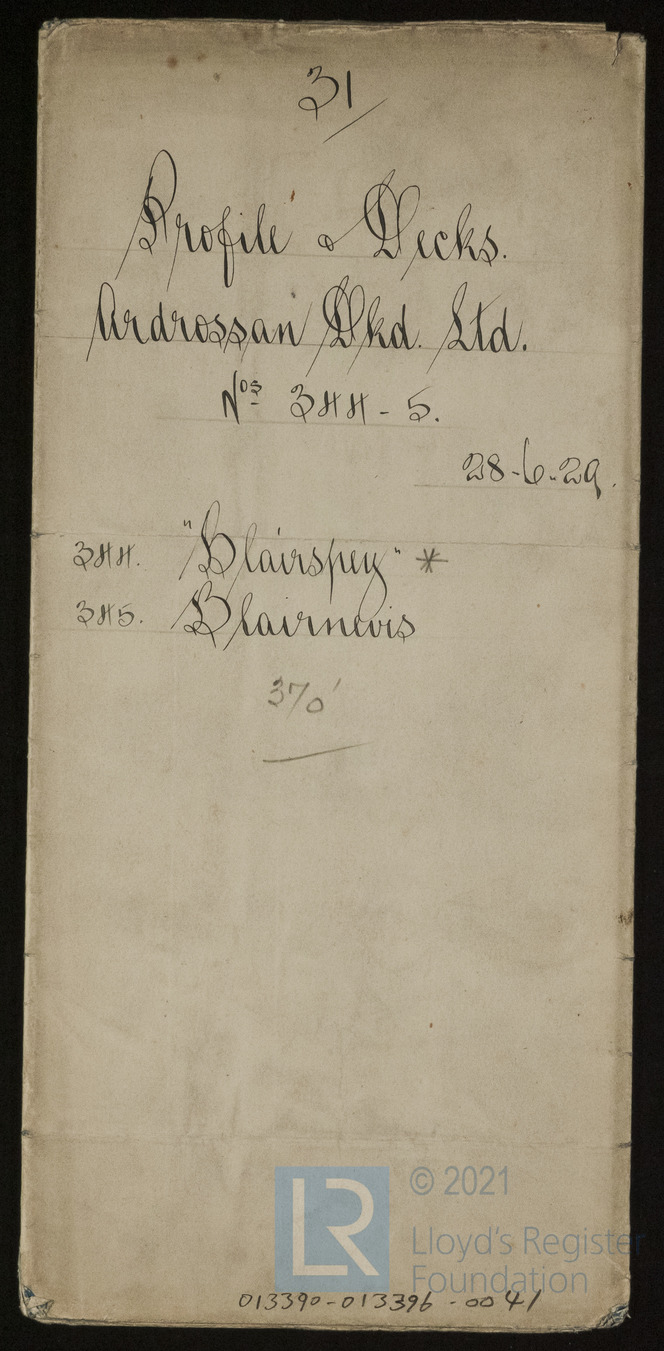 31
Profile & Decks.
Ardrossan Dkd. Ltd.
Nos 344-5.
28-6-29.
344. "Blairspey" *
345. Blairnevis
370'
LR
© 2021
Lloyd's Register
Foundation
013390-013396-0041